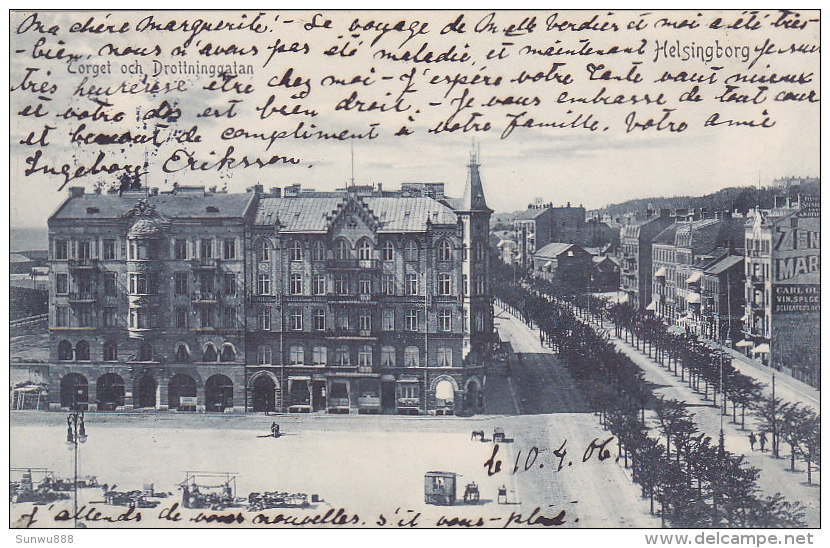 Ma chère Marguerite! - Le voyage de Melle Verdier et moi a été très-
bien, nous n'avons pas été maladie, et maintenant je suis
Helsingborg
Torget och Drottninggatan
très heureuse etre chez moi - J'espère votre Tante vaut mieux
et votre dos est bien droit. - Je vous embrasse de tout cour
et beaucout de compliment à votre famille. Votre amie
Ingeborg Eriksson.
MAR
CARL OL
VIN, SPEC
DELIKATES
le 10. 4. 06.
J'attends de vous nouvelles. s'il vous-plait.
Sunwu888
www.delcampe.net